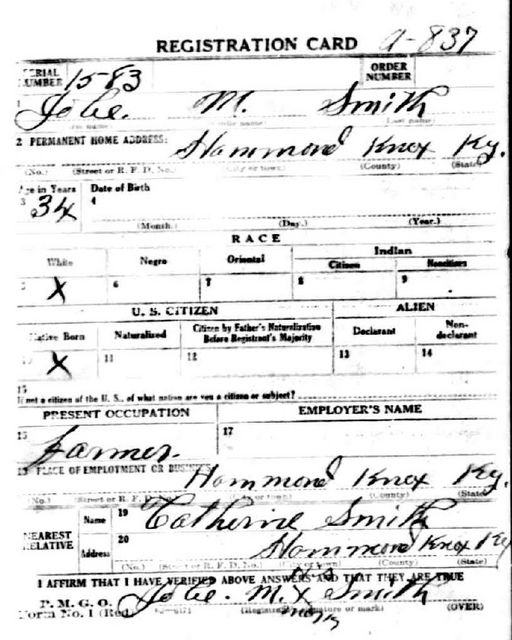 REGISTRATION CARD a-837
SERIAL NUMBER 1583 ORDER NUMBER
1 Jobe. M. Smith
(Last name)
2 PERMANENT HOME ADDRESS:
Hammond Knox Ky.
(No.) (Street or R. F. D. No.) (City or town) (County) (State)
Age in Years Date of Birth
3 34 4
(Month.) (Day.) (Year.)
RACE
White Negro Oriental Indian
Citizen Noncitizen
5 X 6 7 8 9
U. S. CITIZEN ALIEN
Native Born Naturalized Citizen by Father's Naturalization Before Registrant's Majority Declarant Non-declarant
10 X 11 12 13 14
15
If not a citizen of the U. S., of what nation are you a citizen or subject?
PRESENT OCCUPATION EMPLOYER'S NAME
16 Farmer. 17
18 PLACE OF EMPLOYMENT OR BUSINESS
Hammond Knox Ky.
(No.) (Street or R. F. D. No.) (City or town) (County) (State)
NEAREST RELATIVE Name 19 Catherine Smith
Address 20 Hammond Knox Ky
(No.) (Street or R. F. D. No.) (City or town) (County) (State)
I AFFIRM THAT I HAVE VERIFIED ABOVE ANSWERS AND THAT THEY ARE TRUE
P. M. G. O.
Form No. 1 (Red) Jobe. M. X Smith
his
mark
(Registrant's signature or mark) (OVER)